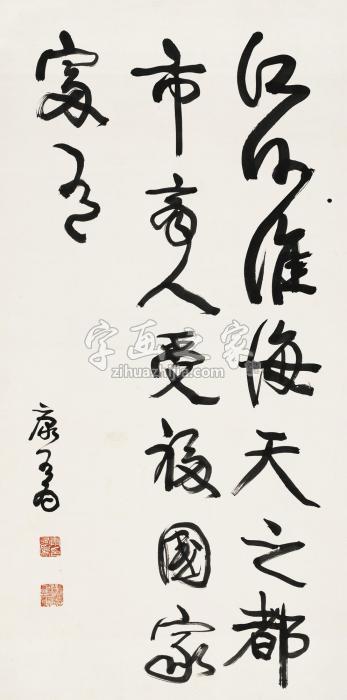 江河淮海天之都
市商人受福國家
富有
康有為
字画之家
zihuazhijia.com